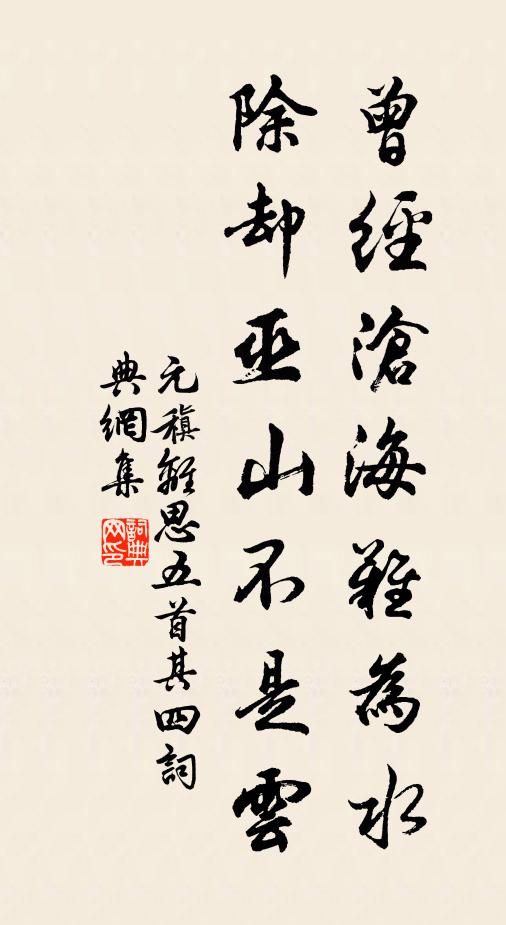 曾經滄海難為水
除却巫山不是雲
元稹離思五首其四詞
典網集
詞典网印